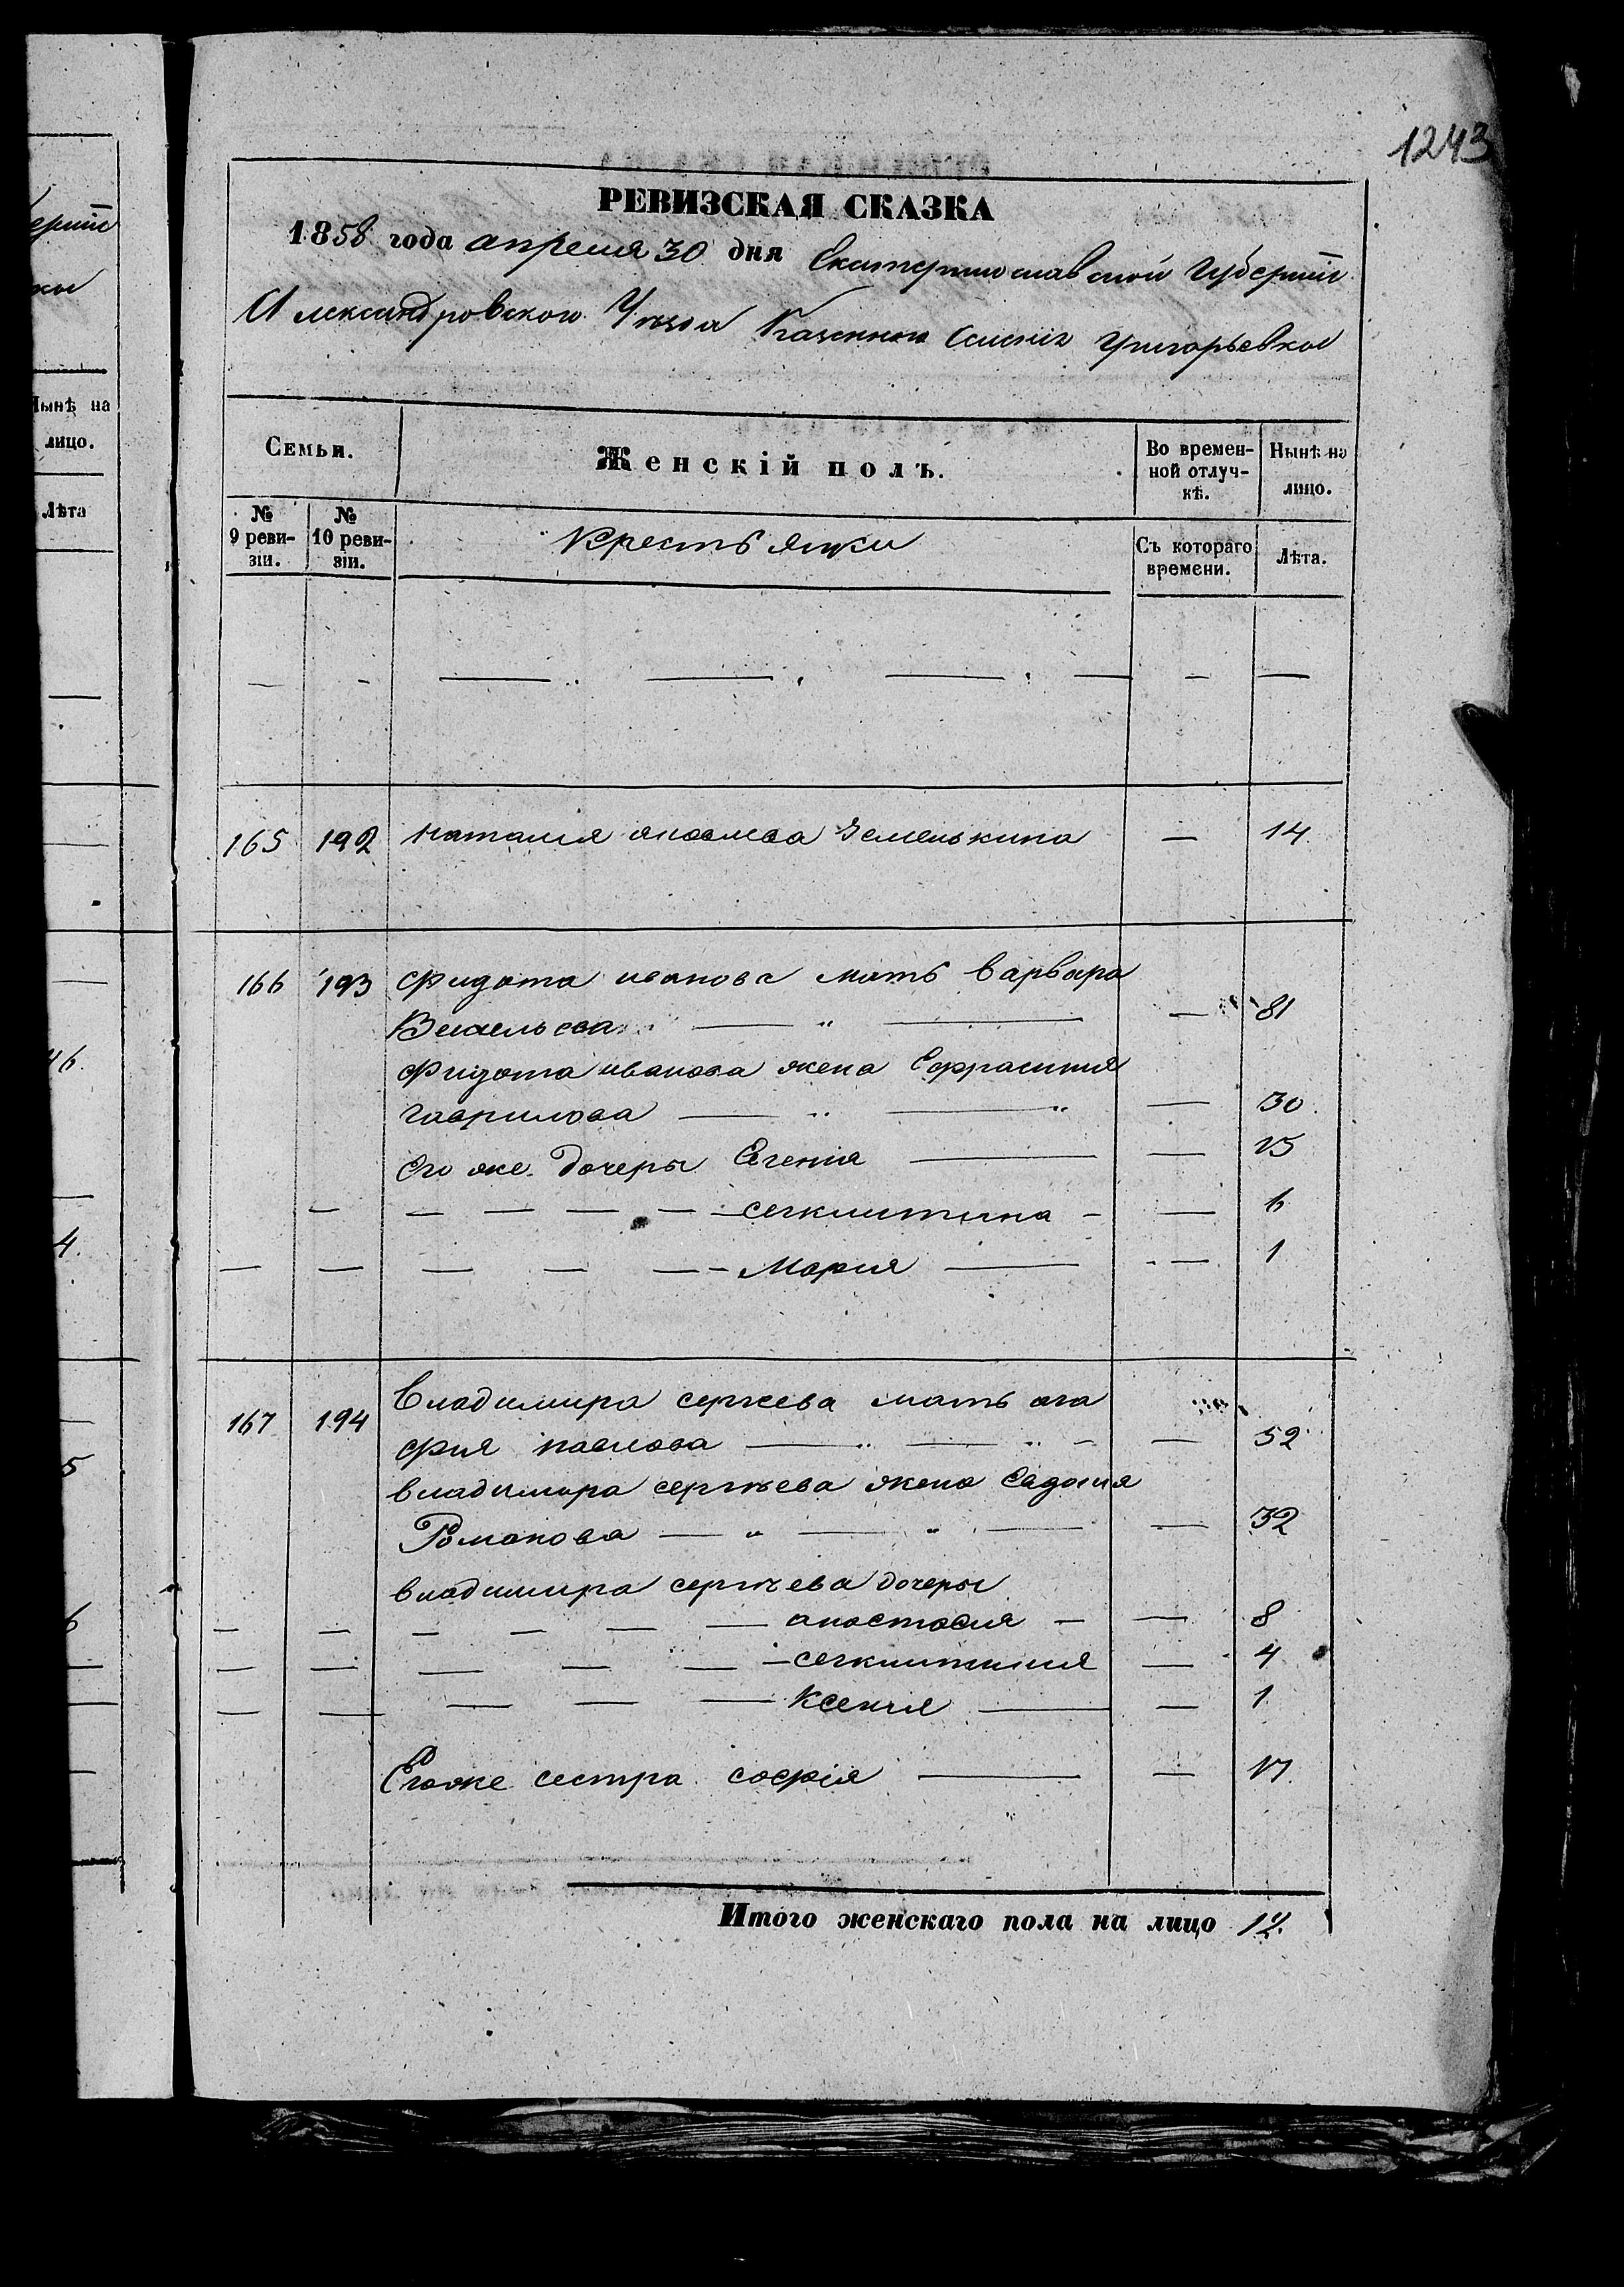 1243
РЕВИЗСКАЯ СКАЗКА
1858 года апреля 30 дня Екатеринославской Губерніи
Александровского Уезда Казенного Селенія Григорьевки
Семьи.
Женскій полъ.
Во времен-
ной отлуч-
кѣ.
Нынѣ на
лицо.
№
9 реви-
зіи.
№
10 реви-
зіи.
Крестьянки
Съ котораго
времени.
Лѣта.
165 192 Наталия яковлева Земелькина — 14.
166 193 Фидота иванова мать Варвара
— 81
Фидота иванова жена Ефрасиния
гаврилова — 30.
Его же дочеры Евгенія — 15
— 6
Мария — 1
167 194 Владимира сергеева мать ага
фия павлова — 52
владимира сергѣева жена
Романова — 32
владимира сергѣева дочеры
анастасия — 8
— 4
Ксения — 1
Егоже сестра софія — 17.
Итого женскаго пола на лицо 12.
ерніи
ки
Нынѣ на
лицо.
Лѣта
46.
4.
5
6